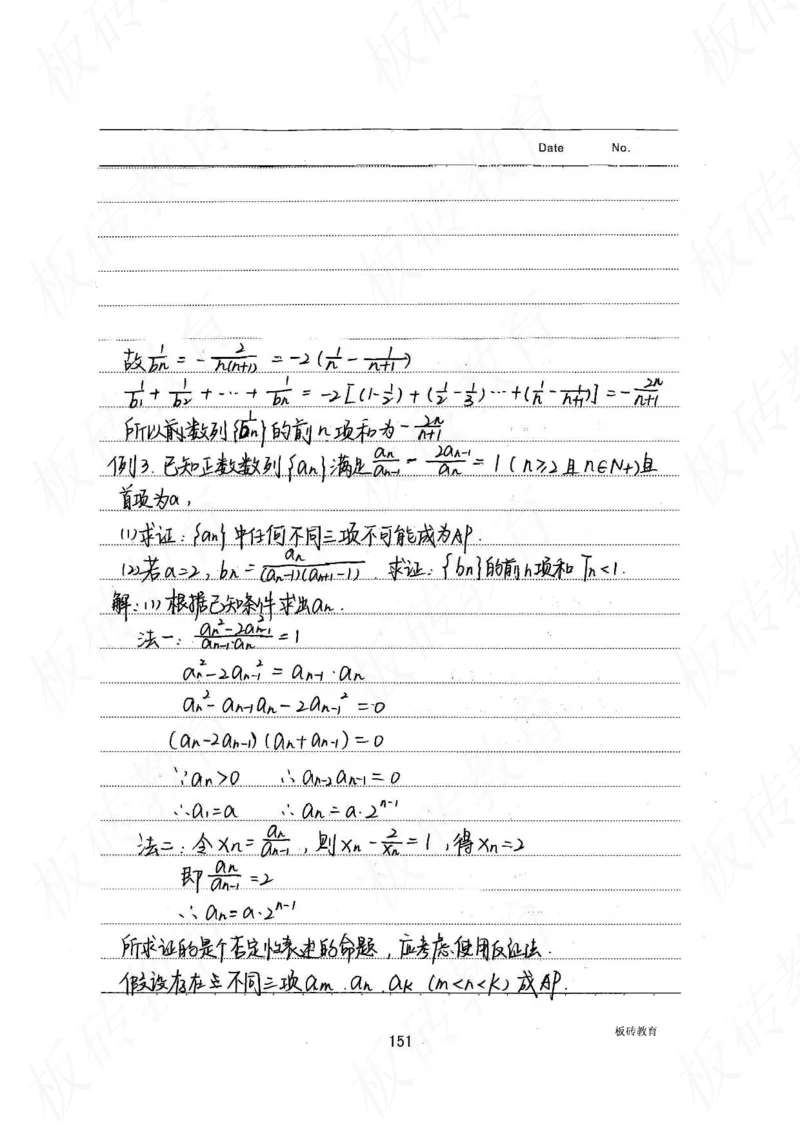 Date No.
故 1/bn = - 2/n(n+1) = -2 (1/n - 1/n+1)
1/b1 + 1/b2 + ··· + 1/bn = -2 [(1-1/2) + (1/2 - 1/3) ··· +(1/n - 1/n+1)] = - 2n/n+1
所以前数列{1/bn}的前n项和为 - 2n/n+1
例3. 已知正数数列{an}满足 an/an-1 - 2an-1/an = 1 (n≥2且n∈N+)且
首项为a,
(1)求证: {an}中任何不同三项不可能成为AP.
(2)若a=2, bn = an/(an-1)(an+1-1) . 求证: {bn}的前n项和 Tn<1.
解: (1) 根据已知条件求出an.
法一: an²-2an-1²/an-1·an = 1
an²-2an-1² = an-1·an
an²-an-1an-2an-1² = 0
(an-2an-1)(an+an-1) = 0
∵an>0 ∴an-2an-1=0
∴a1=a ∴an=a·2ⁿ⁻¹
法二: 令xn= an/an-1 , 则xn - 2/xn = 1 , 得xn=2
即 an/an-1 =2
∴an=a·2ⁿ⁻¹
所求证的是个否定性表述的命题, 应考虑使用反证法.
假设存在不同三项am. an. ak (m<n<k) 成AP.
151
板砖教育